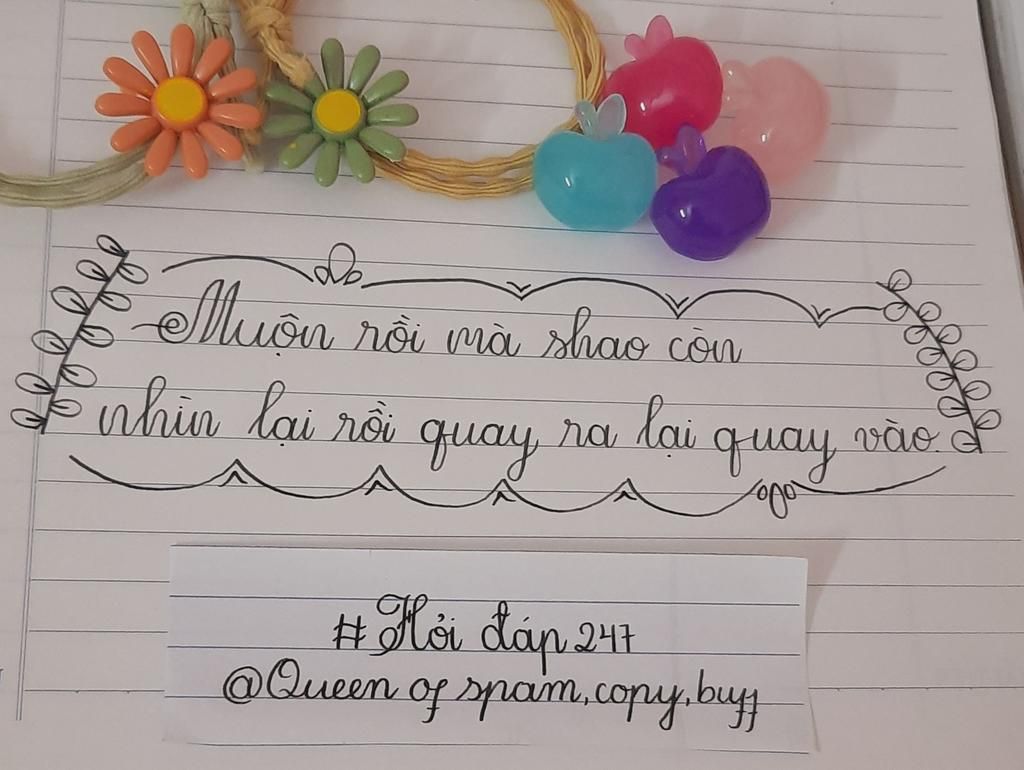 Muộn rồi mà shao còn
nhìn lại rồi quay ra lại quay vào.
# Hỏi đáp 247
@Queen of spam, copy, buff